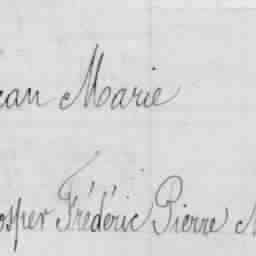 ean Marie
osper Frédéric Pierre M